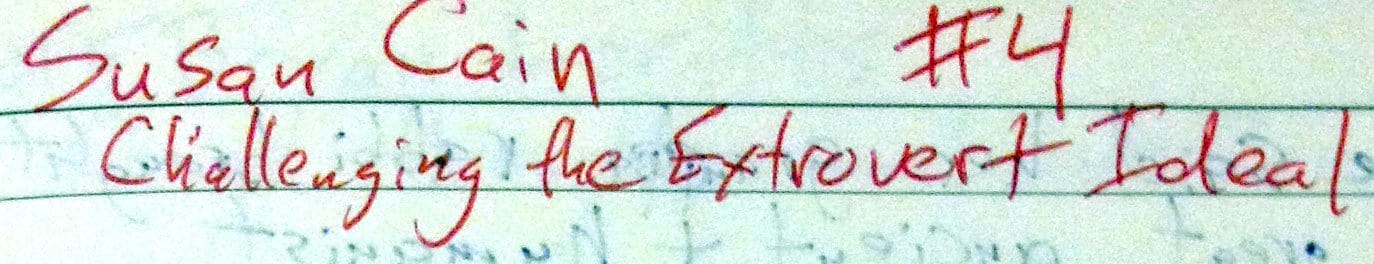 Susan Cain #4
Challenging the Extrovert Ideal